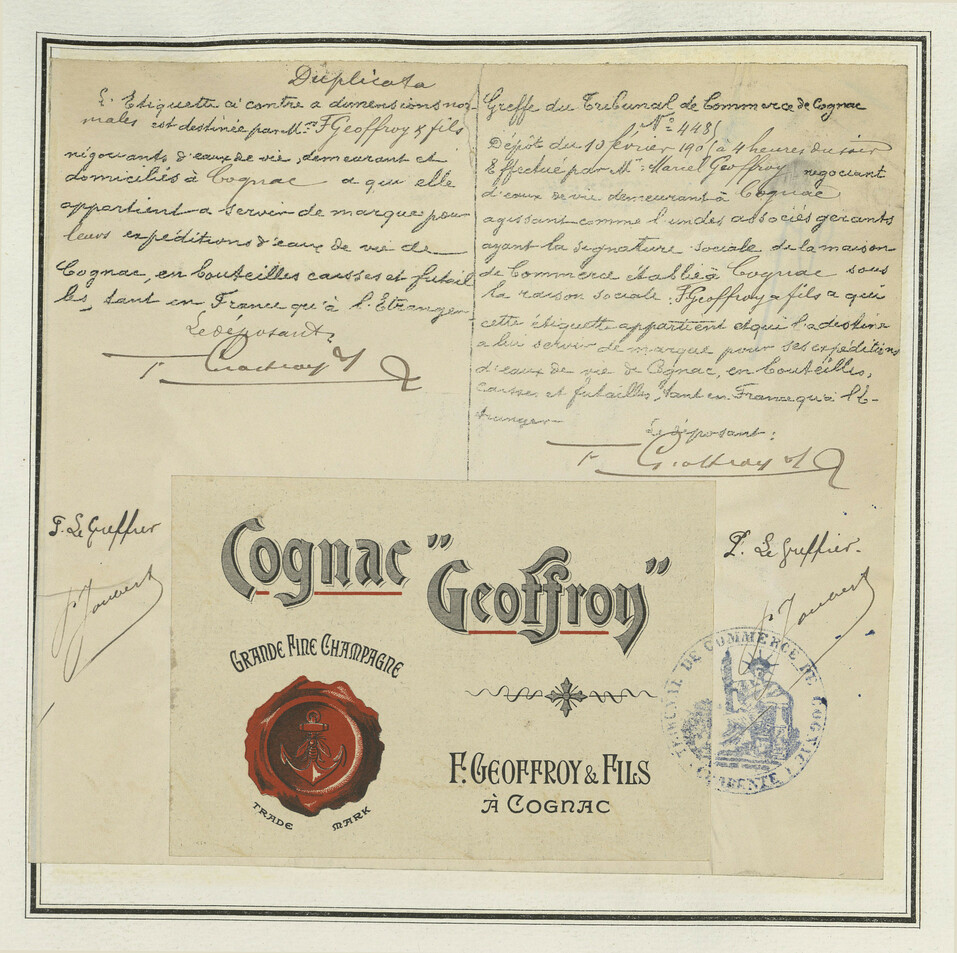 Duplicata
L'Etiquette ci contre a dimensions nor-
males est destinée par Mrs F Geoffroy & fils
négociants d'eaux de vie, demeurant et
domiciliés à Cognac a qui elle
appartient a servir de marque pour
leurs expéditions d'eaux de vie de
Cognac, en bouteilles caisses et futail
les, tant en France qu'à l'Etranger
Le déposant:
F. Geoffroy & f
Greffe du Tribunal de Commerce de Cognac
No 448
Dépôt du 10 février 190 à 4 heures du soir
Effectué par Mr Marcel Geoffroy négociant
d'eaux de vie demeurant à Cognac
agissant comme l'un des associés gérants
ayant la signature sociale de la maison
de Commerce établie à Cognac sous
la raison sociale: F Geoffroy & fils a qui
cette étiquette appartient et qui l'a destine
a lui servir de marque pour ses expéditions
d'eaux de vie de Cognac, en bouteilles,
caisses et futailles, tant en France qu'à l'É-
tranger
Le déposant:
F. Geoffroy & f
P. Le Greffier
P. Le Greffier.
Joubert
Joubert
Cognac "Geoffroy"
GRANDE FINE CHAMPAGNE
TRADE MARK
F. GEOFFROY & FILS
À COGNAC
TRIBUNAL DE COMMERCE DE COGNAC
CHARENTE